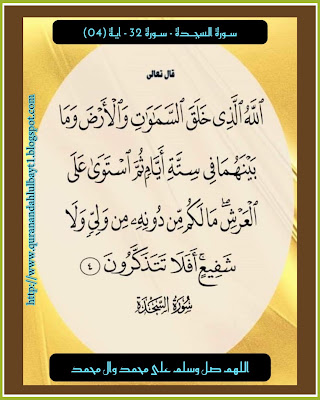 سورة السجدة - سورة 32 - اية (04)
قال تعالى
ٱللَّهُ ٱلَّذِى خَلَقَ ٱلسَّمَـٰوَٰتِ وَٱلْأَرْضَ وَمَا
بَيْنَهُمَا فِى سِتَّةِ أَيَّامٍ ثُمَّ ٱسْتَوَىٰ عَلَى
ٱلْعَرْشِ ۖ مَا لَكُم مِّن دُونِهِۦ مِن وَلِىٍّ وَلَا
شَفِيعٍ ۚ أَفَلَا تَتَذَكَّرُونَ ٤
سُورَةُ السَّجْدَةِ
http://www.quranandahlulbayt1.blogspot.com
اللهم صل وسلم على محمد وال محمد